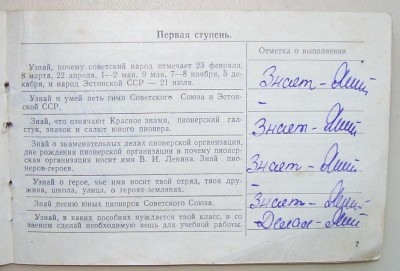 Первая ступень.
Отметка о выполнении
Узнай, почему советский народ отмечает 23 февраля,
8 марта, 22 апреля, 1—2 мая, 9 мая, 7—8 ноября, 5 де-
кабря, и народ Эстонской ССР — 21 июля.
Знает -
Узнай и умей петь гимн Советского Союза и Эстон-
ской ССР.
-
Узнай, что означают Красное знамя, пионерский гал-
стук, значок и салют юного пионера.
Знает -
Знай о знаменательных делах пионерской организации,
дне рождения пионерской организации и почему пио-
нерская организация носит имя В. И. Ленина. Знай пи-
онеров-героев.
Знает -
Узнай о герое, чье имя носит твой отряд, твоя дру-
жина, школа, улица, о героях-земляках.
-
Знай песню юных пионеров Советского Союза.
Знает -
Узнай, в каких пособиях нуждается твой класс, и со
звеном сделай необходимую вещь для учебной работы.
Делал -
7